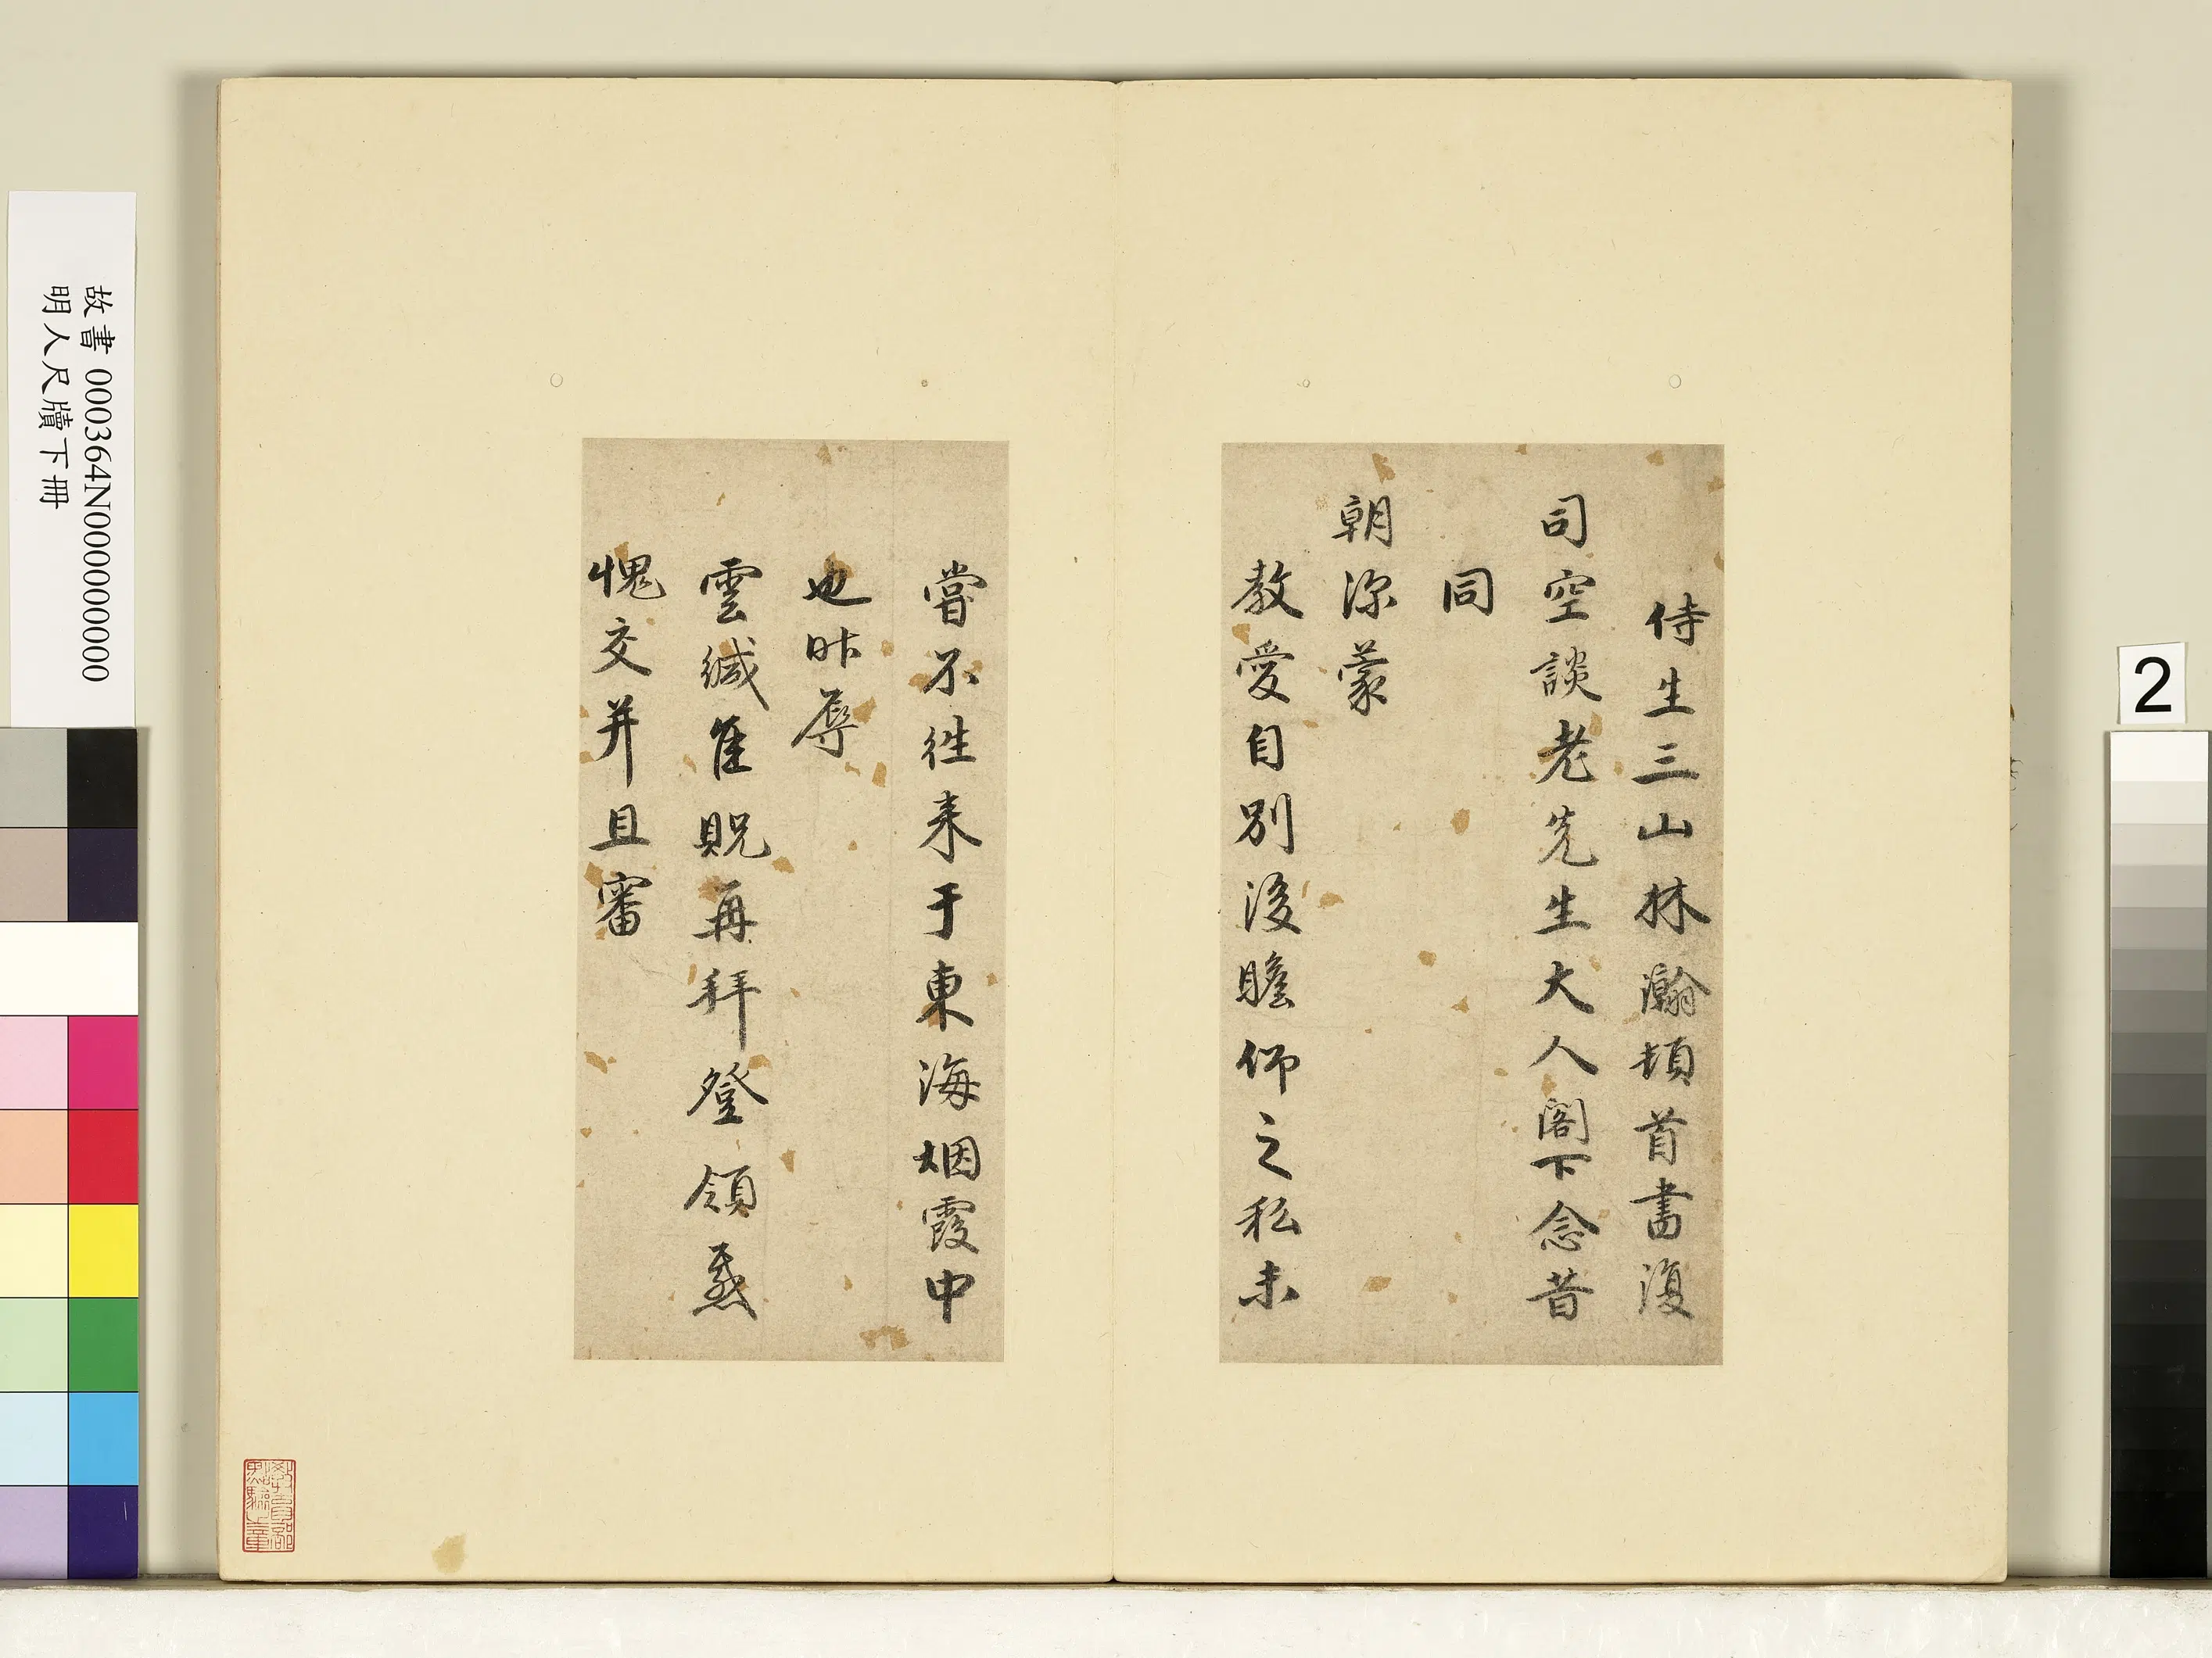 侍生三山林瀚頓首書復
司空談老先生大人閣下念昔
同
朝深蒙
教愛自別後瞻仰之私未
嘗不往来于東海烟霞中
也昨辱
雲緘隹貺再拜登領感
愧交并且審
故書 000364N000000000
明人尺牘下冊
2
教育部
點驗之章